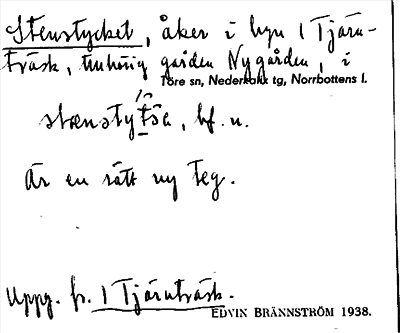 Stenstycket, åker i byn 1 Tjärn-
träsk, tillhörig gården Nygården, i
Töre sn, Nederkalix tg, Norrbottens l.
bf. n.
Är en rätt ny teg.
Uppg. fr. 1 Tjärnträsk.
EDVIN BRÄNNSTRÖM 1938.